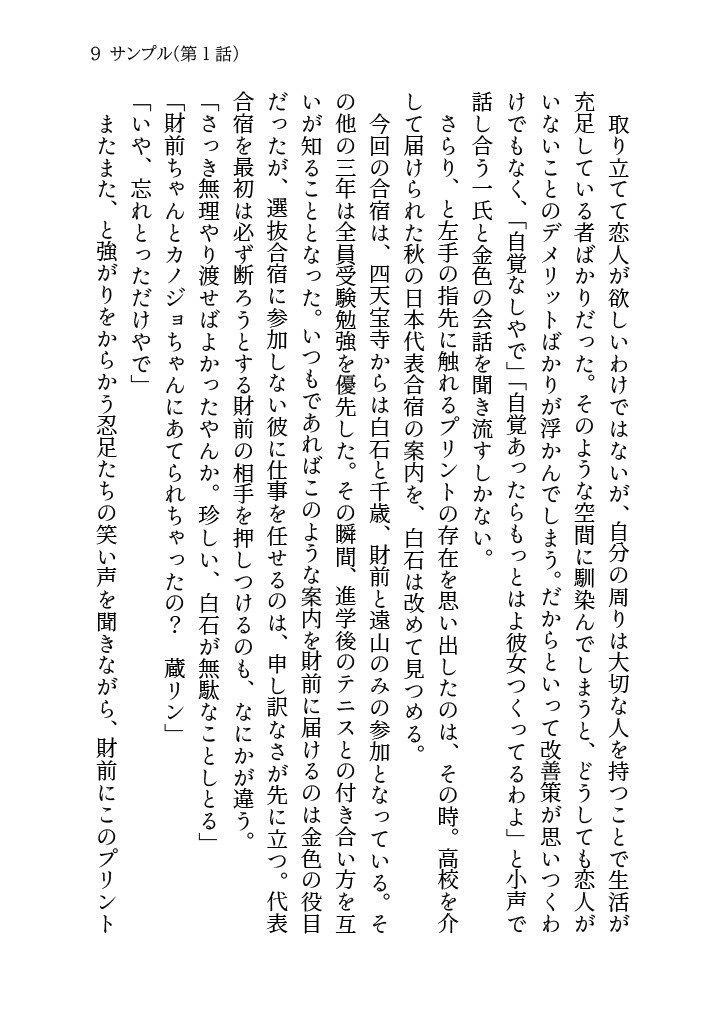 9 サンプル(第1話)
　取り立てて恋人が欲しいわけではないが、自分の周りは大切な人を持つことで生活が
充足している者ばかりだった。そのような空間に馴染んでしまうと、どうしても恋人が
いないことのデメリットばかりが浮かんでしまう。だからといって改善策が思いつくわ
けでもなく、「自覚なしやで」「自覚あったらもっとはよ彼女つくってるわよ」と小声で
話し合う一氏と金色の会話を聞き流すしかない。
　さらり、と左手の指先に触れるプリントの存在を思い出したのは、その時。高校を介
して届けられた秋の日本代表合宿の案内を、白石は改めて見つめる。
　今回の合宿は、四天宝寺からは白石と千歳、財前と遠山のみの参加となっている。そ
の他の三年は全員受験勉強を優先した。その瞬間、進学後のテニスとの付き合い方を互
いが知ることとなった。いつもであればこのような案内を財前に届けるのは金色の役目
だったが、選抜合宿に参加しない彼に仕事を任せるのは、申し訳なさが先に立つ。代表
合宿を最初は必ず断ろうとする財前の相手を押しつけるのも、なにかが違う。
「さっき無理やり渡せばよかったやんか。珍しい、白石が無駄なことしとる」
「財前ちゃんとカノジョちゃんにあてられちゃったの？　蔵リン」
「いや、忘れとっただけやで」
　またまた、と強がりをからかう忍足たちの笑い声を聞きながら、財前にこのプリント